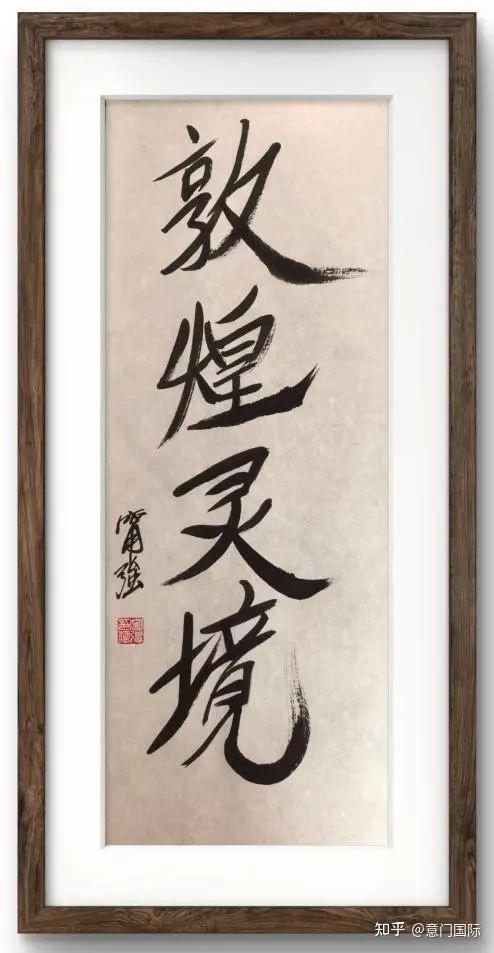 敦煌灵境
甯强
知乎 @意门国际